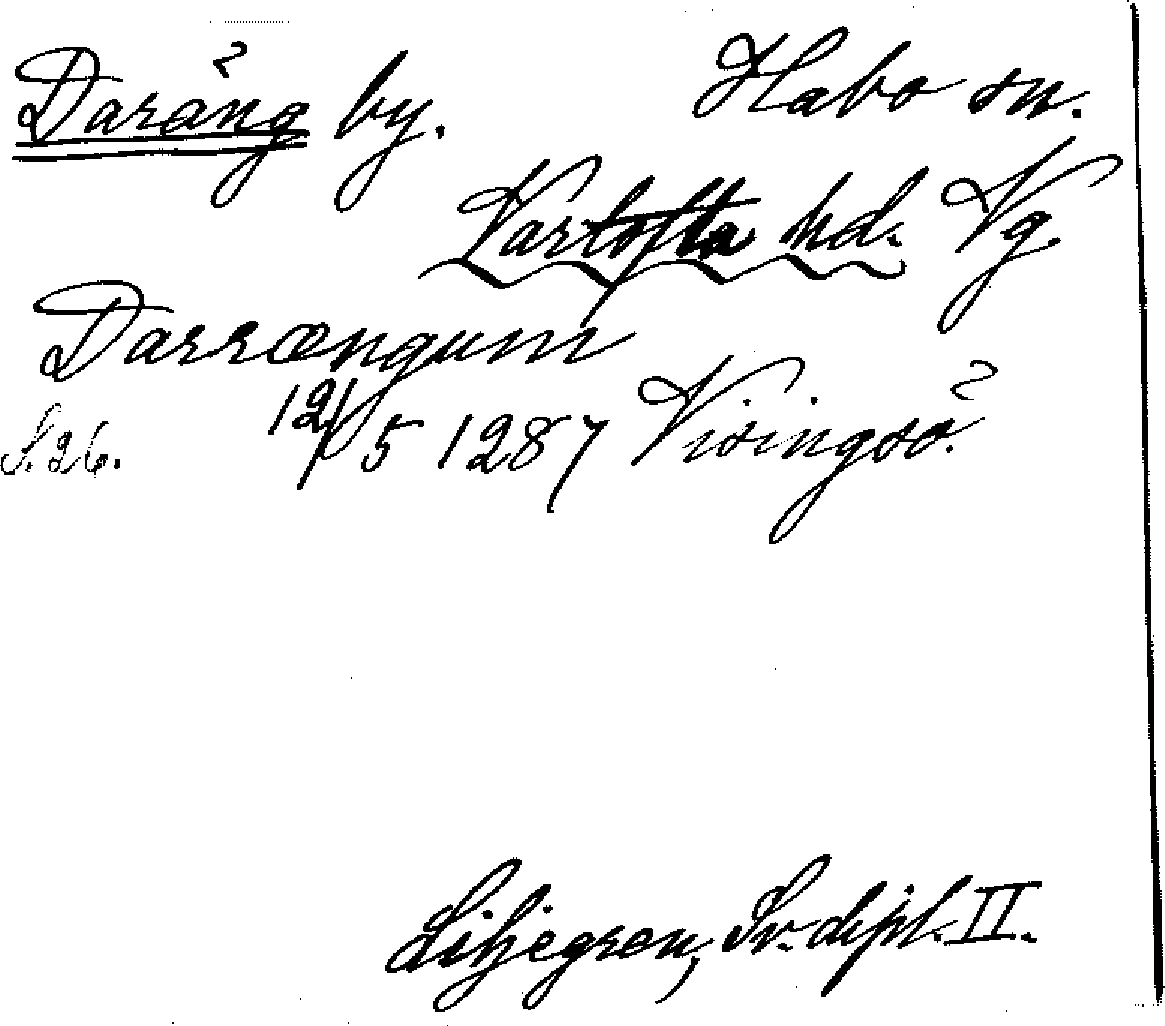 Daräng by. Habo sn.
Vartofta hd. Vg.
Darrængum
S. 26. 12/5 1287 Visingsö.
Liljegren, Sv. dipl. II.